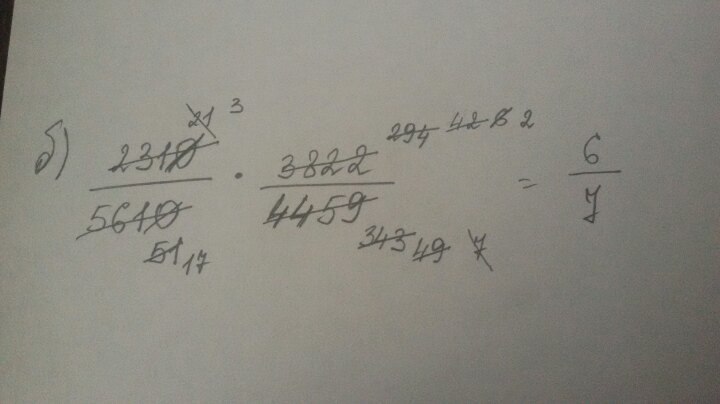 21 3
294 42 6 2
б) 2310 / 5610 · 3822 / 4459 = 6 / 7
51 17
343 49 7